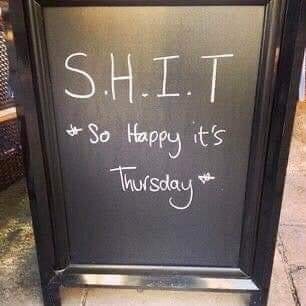 S.H.I.T
* So Happy it's
Thursday *